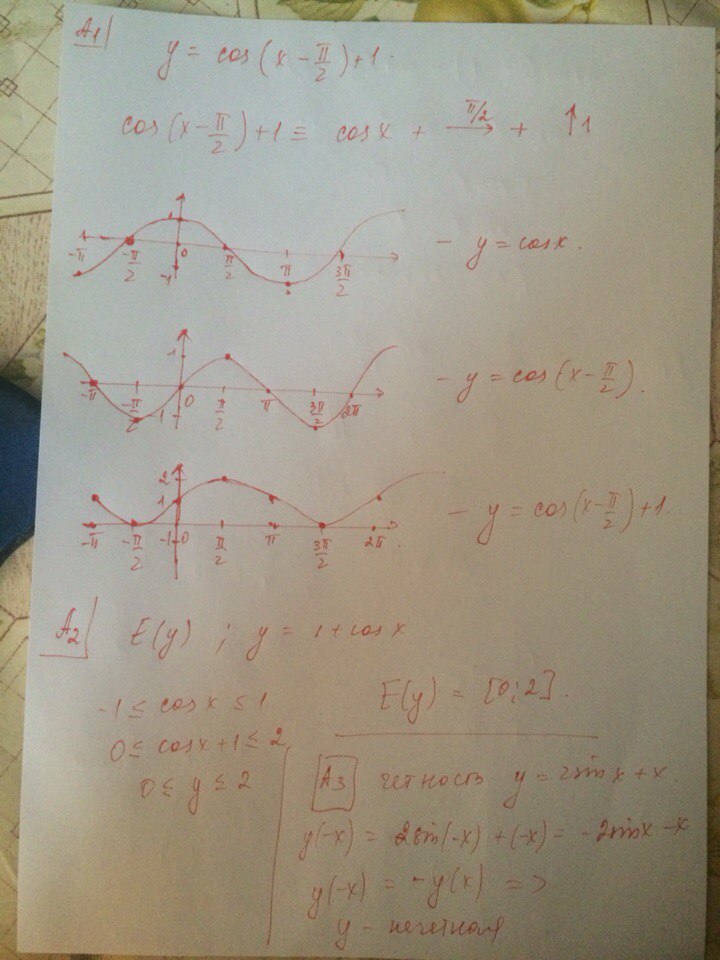 A1
y = cos(x - π/2) + 1.
cos(x - π/2) + 1 = cos x + π/2 → + ↑1
1
-π -π/2 0 π/2 π 3π/2
-1
- y = cos x.
1
-π -π/2 0 π/2 π 3π/2 2π
-1
- y = cos(x - π/2).
2
1
-π -π/2 -1 0 π/2 π 3π/2 2π
- y = cos(x - π/2) + 1.
A2 E(y) ; y = 1 + cos x
-1 ≤ cos x ≤ 1
0 ≤ cos x + 1 ≤ 2
0 ≤ y ≤ 2
E(y) = [0; 2].
A3 четность y = 2sin x + x.
y(-x) = 2sin(-x) + (-x) = -2sin x - x
y(-x) = -y(x) =>
y - нечетная